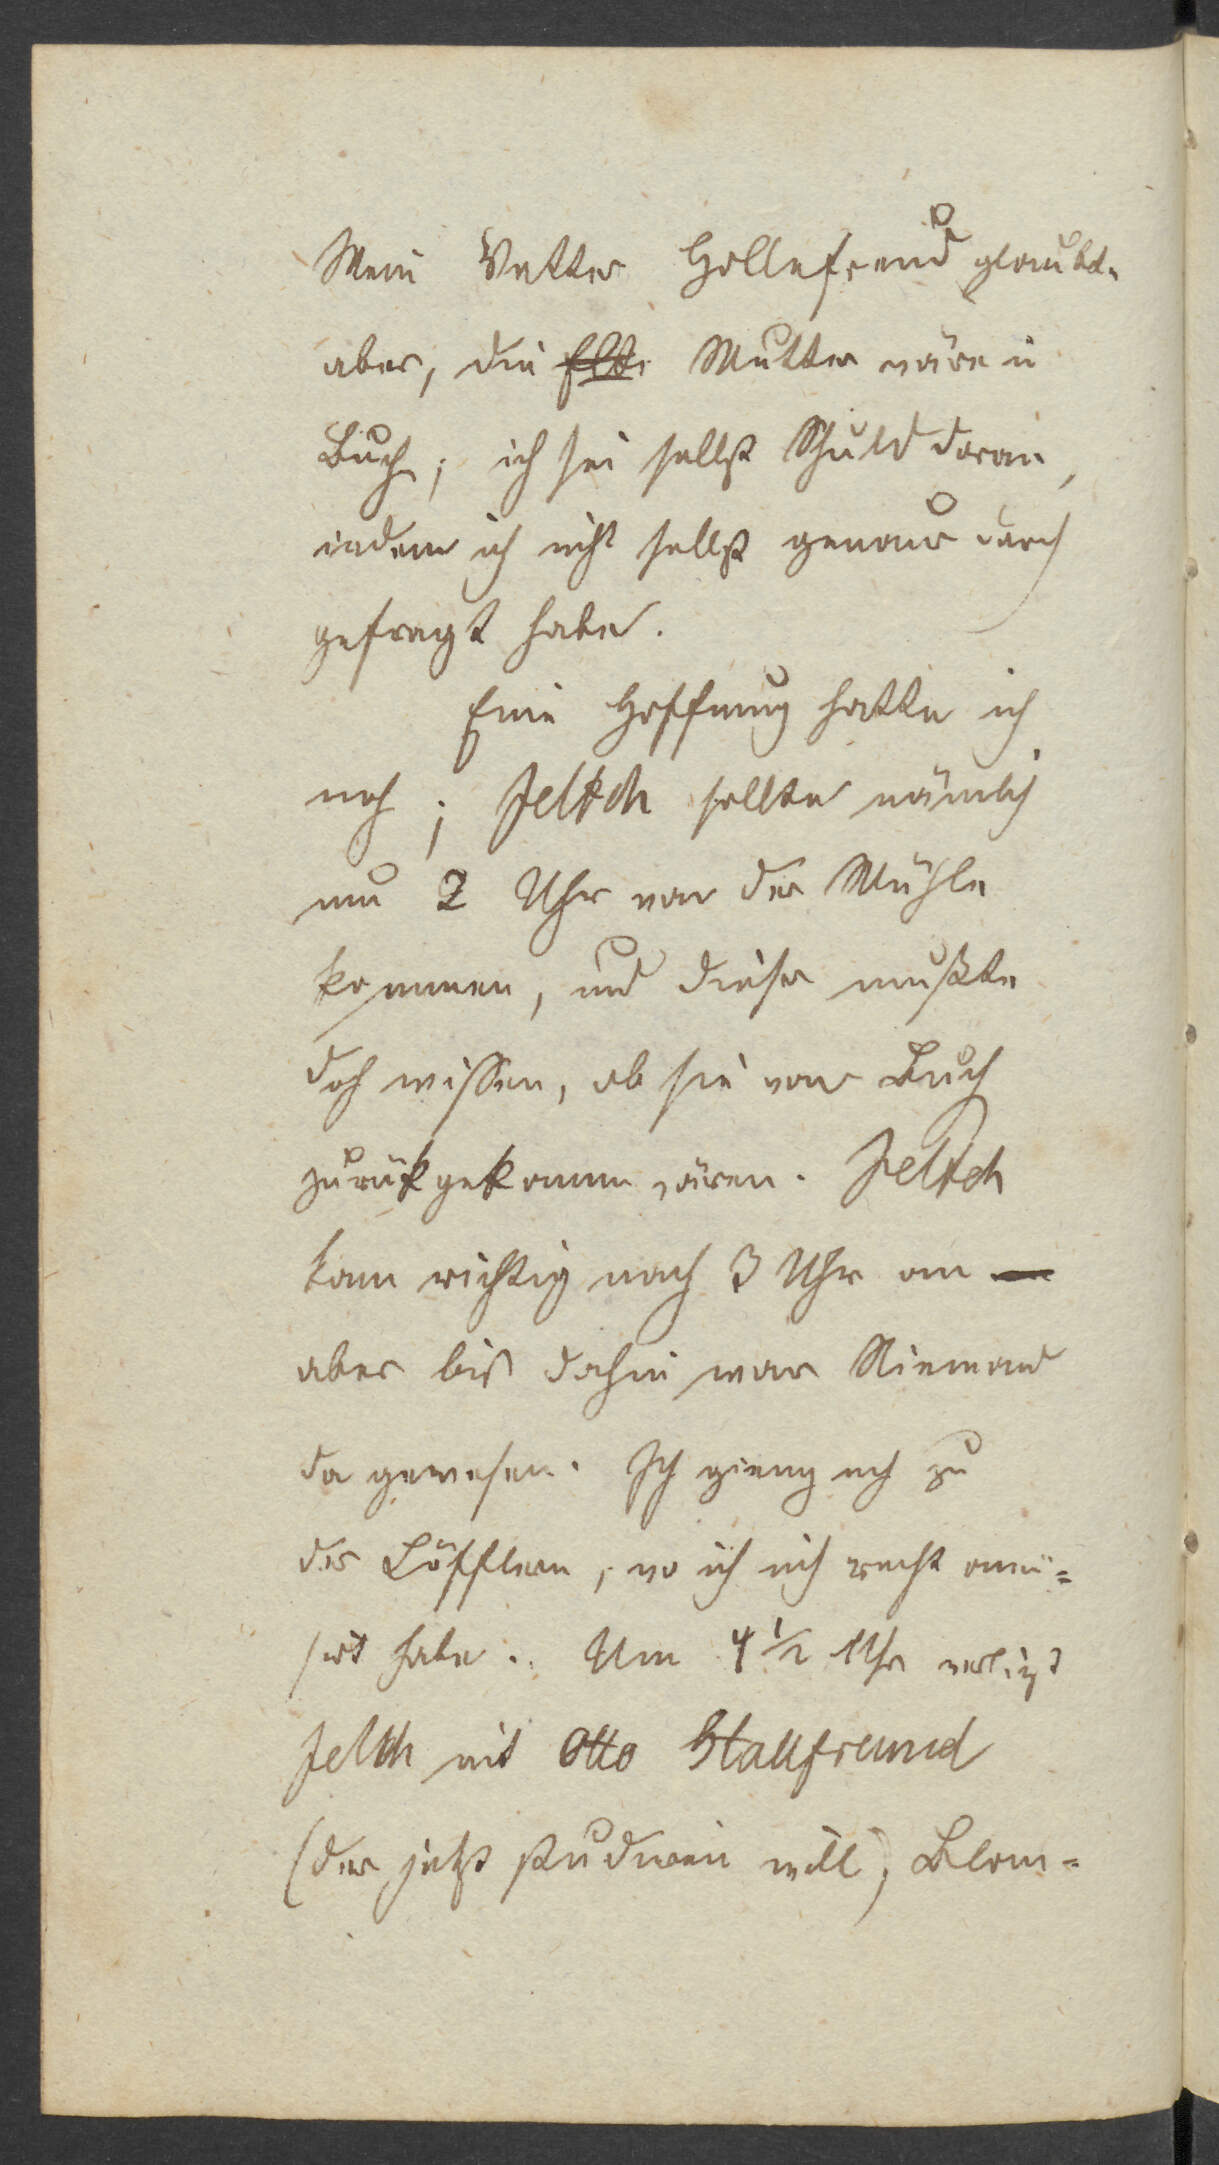 Mein Vetter Hollefreund glaubt
aber, die Mutter wäre in
Buch; ich sei selbst Schuld daran,
indem ich nicht selbst genau darnach
gefragt habe.
Eine Hoffnung hatte ich
noch; Jeltsch sollte nämlich
um 2 Uhr von der Mühle
kommen, und dieser mußte
doch wissen, ob sie von Buch
zurükgekommen wären. Jeltsch
kam richtig nach 3 Uhr an —
aber bis dahin war Niemand
da gewesen. Ich gieng noch zu
der Löfflern, wo ich mich recht amü=
sirt habe. Um 4 1/2 Uhr
Jeltsch mit Otto Stallfreund
(der jetzt studiren will), Blom=